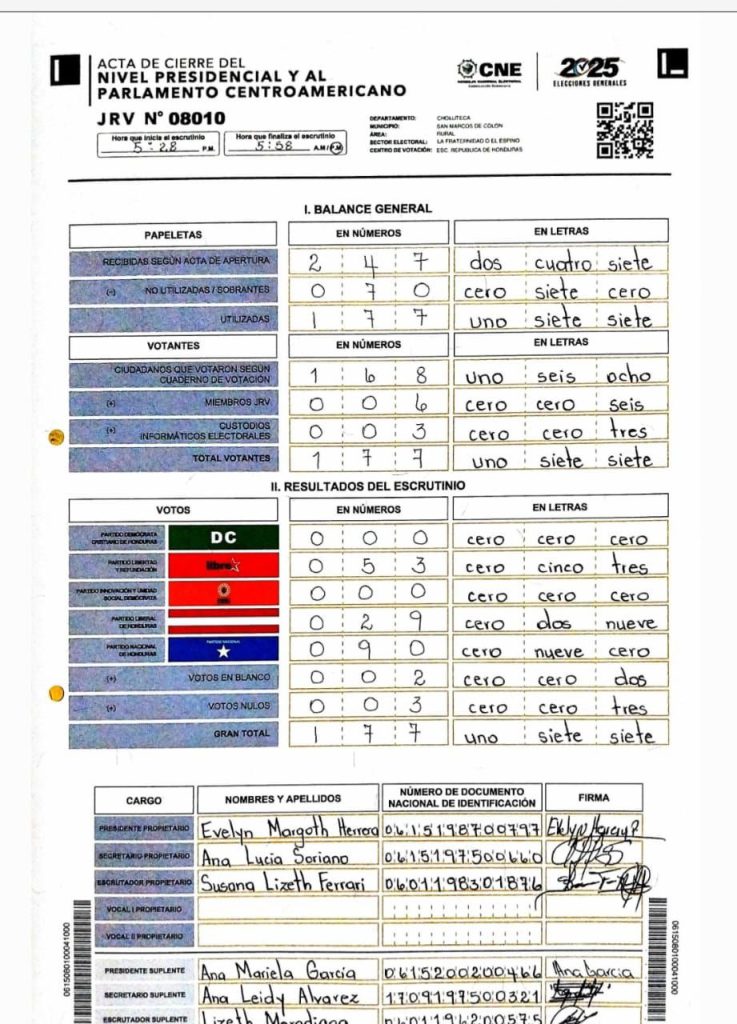 ACTA DE CIERRE DEL
NIVEL PRESIDENCIAL Y AL
PARLAMENTO CENTROAMERICANO
CNE
CONSEJO NACIONAL ELECTORAL
2025
ELECCIONES GENERALES
JRV N° 08010
Hora que inicia el escrutinio 5:28 P.M.
Hora que finaliza el escrutinio 5:58 A.M/P.M
DEPARTAMENTO: CHOLUTECA
MUNICIPIO: SAN MARCOS DE COLON
ÁREA: RURAL
SECTOR ELECTORAL: LA FRATERNIDAD O EL ESPINO
CENTRO DE VOTACIÓN: ESC. REPUBLICA DE HONDURAS
I. BALANCE GENERAL
PAPELETAS EN NÚMEROS EN LETRAS
RECIBIDAS SEGÚN ACTA DE APERTURA 2 4 7 dos cuatro siete
(-) NO UTILIZADAS / SOBRANTES 0 7 0 cero siete cero
UTILIZADAS 1 7 7 uno siete siete
VOTANTES EN NÚMEROS EN LETRAS
CIUDADANOS QUE VOTARON SEGÚN
CUADERNO DE VOTACIÓN 1 6 8 uno seis ocho
(+) MIEMBROS JRV 0 0 6 cero cero seis
(+) CUSTODIOS
INFORMÁTICOS ELECTORALES 0 0 3 cero cero tres
TOTAL VOTANTES 1 7 7 uno siete siete
II. RESULTADOS DEL ESCRUTINIO
VOTOS EN NÚMEROS EN LETRAS
PARTIDO DEMÓCRATA
CRISTIANO DE HONDURAS DC 0 0 0 cero cero cero
PARTIDO LIBERTAD
Y REFUNDACIÓN libre 0 5 3 cero cinco tres
PARTIDO INNOVACIÓN Y UNIDAD
SOCIAL DEMÓCRATA 0 0 0 cero cero cero
PARTIDO LIBERAL
DE HONDURAS 0 2 9 cero dos nueve
PARTIDO NACIONAL
DE HONDURAS PARTIDO NACIONAL 0 9 0 cero nueve cero
(+) VOTOS EN BLANCO 0 0 2 cero cero dos
(+) VOTOS NULOS 0 0 3 cero cero tres
GRAN TOTAL 1 7 7 uno siete siete
CARGO NOMBRES Y APELLIDOS NÚMERO DE DOCUMENTO NACIONAL DE IDENTIFICACIÓN FIRMA
PRESIDENTE PROPIETARIO Evelyn Margoth Herrera 0615198700797
SECRETARIO PROPIETARIO Ana Lucia Soriano 0615197500660
ESCRUTADOR PROPIETARIO Susana Lizeth Ferrari 0601198301876
VOCAL I PROPIETARIO
VOCAL II PROPIETARIO
PRESIDENTE SUPLENTE Ana Mariela Garcia 0615200200466 Ana Garcia
SECRETARIO SUPLENTE Ana Leidy Alvarez 1709197500321
ESCRUTADOR SUPLENTE Lizeth 0601196200575
0615080100041000
0615080100041000